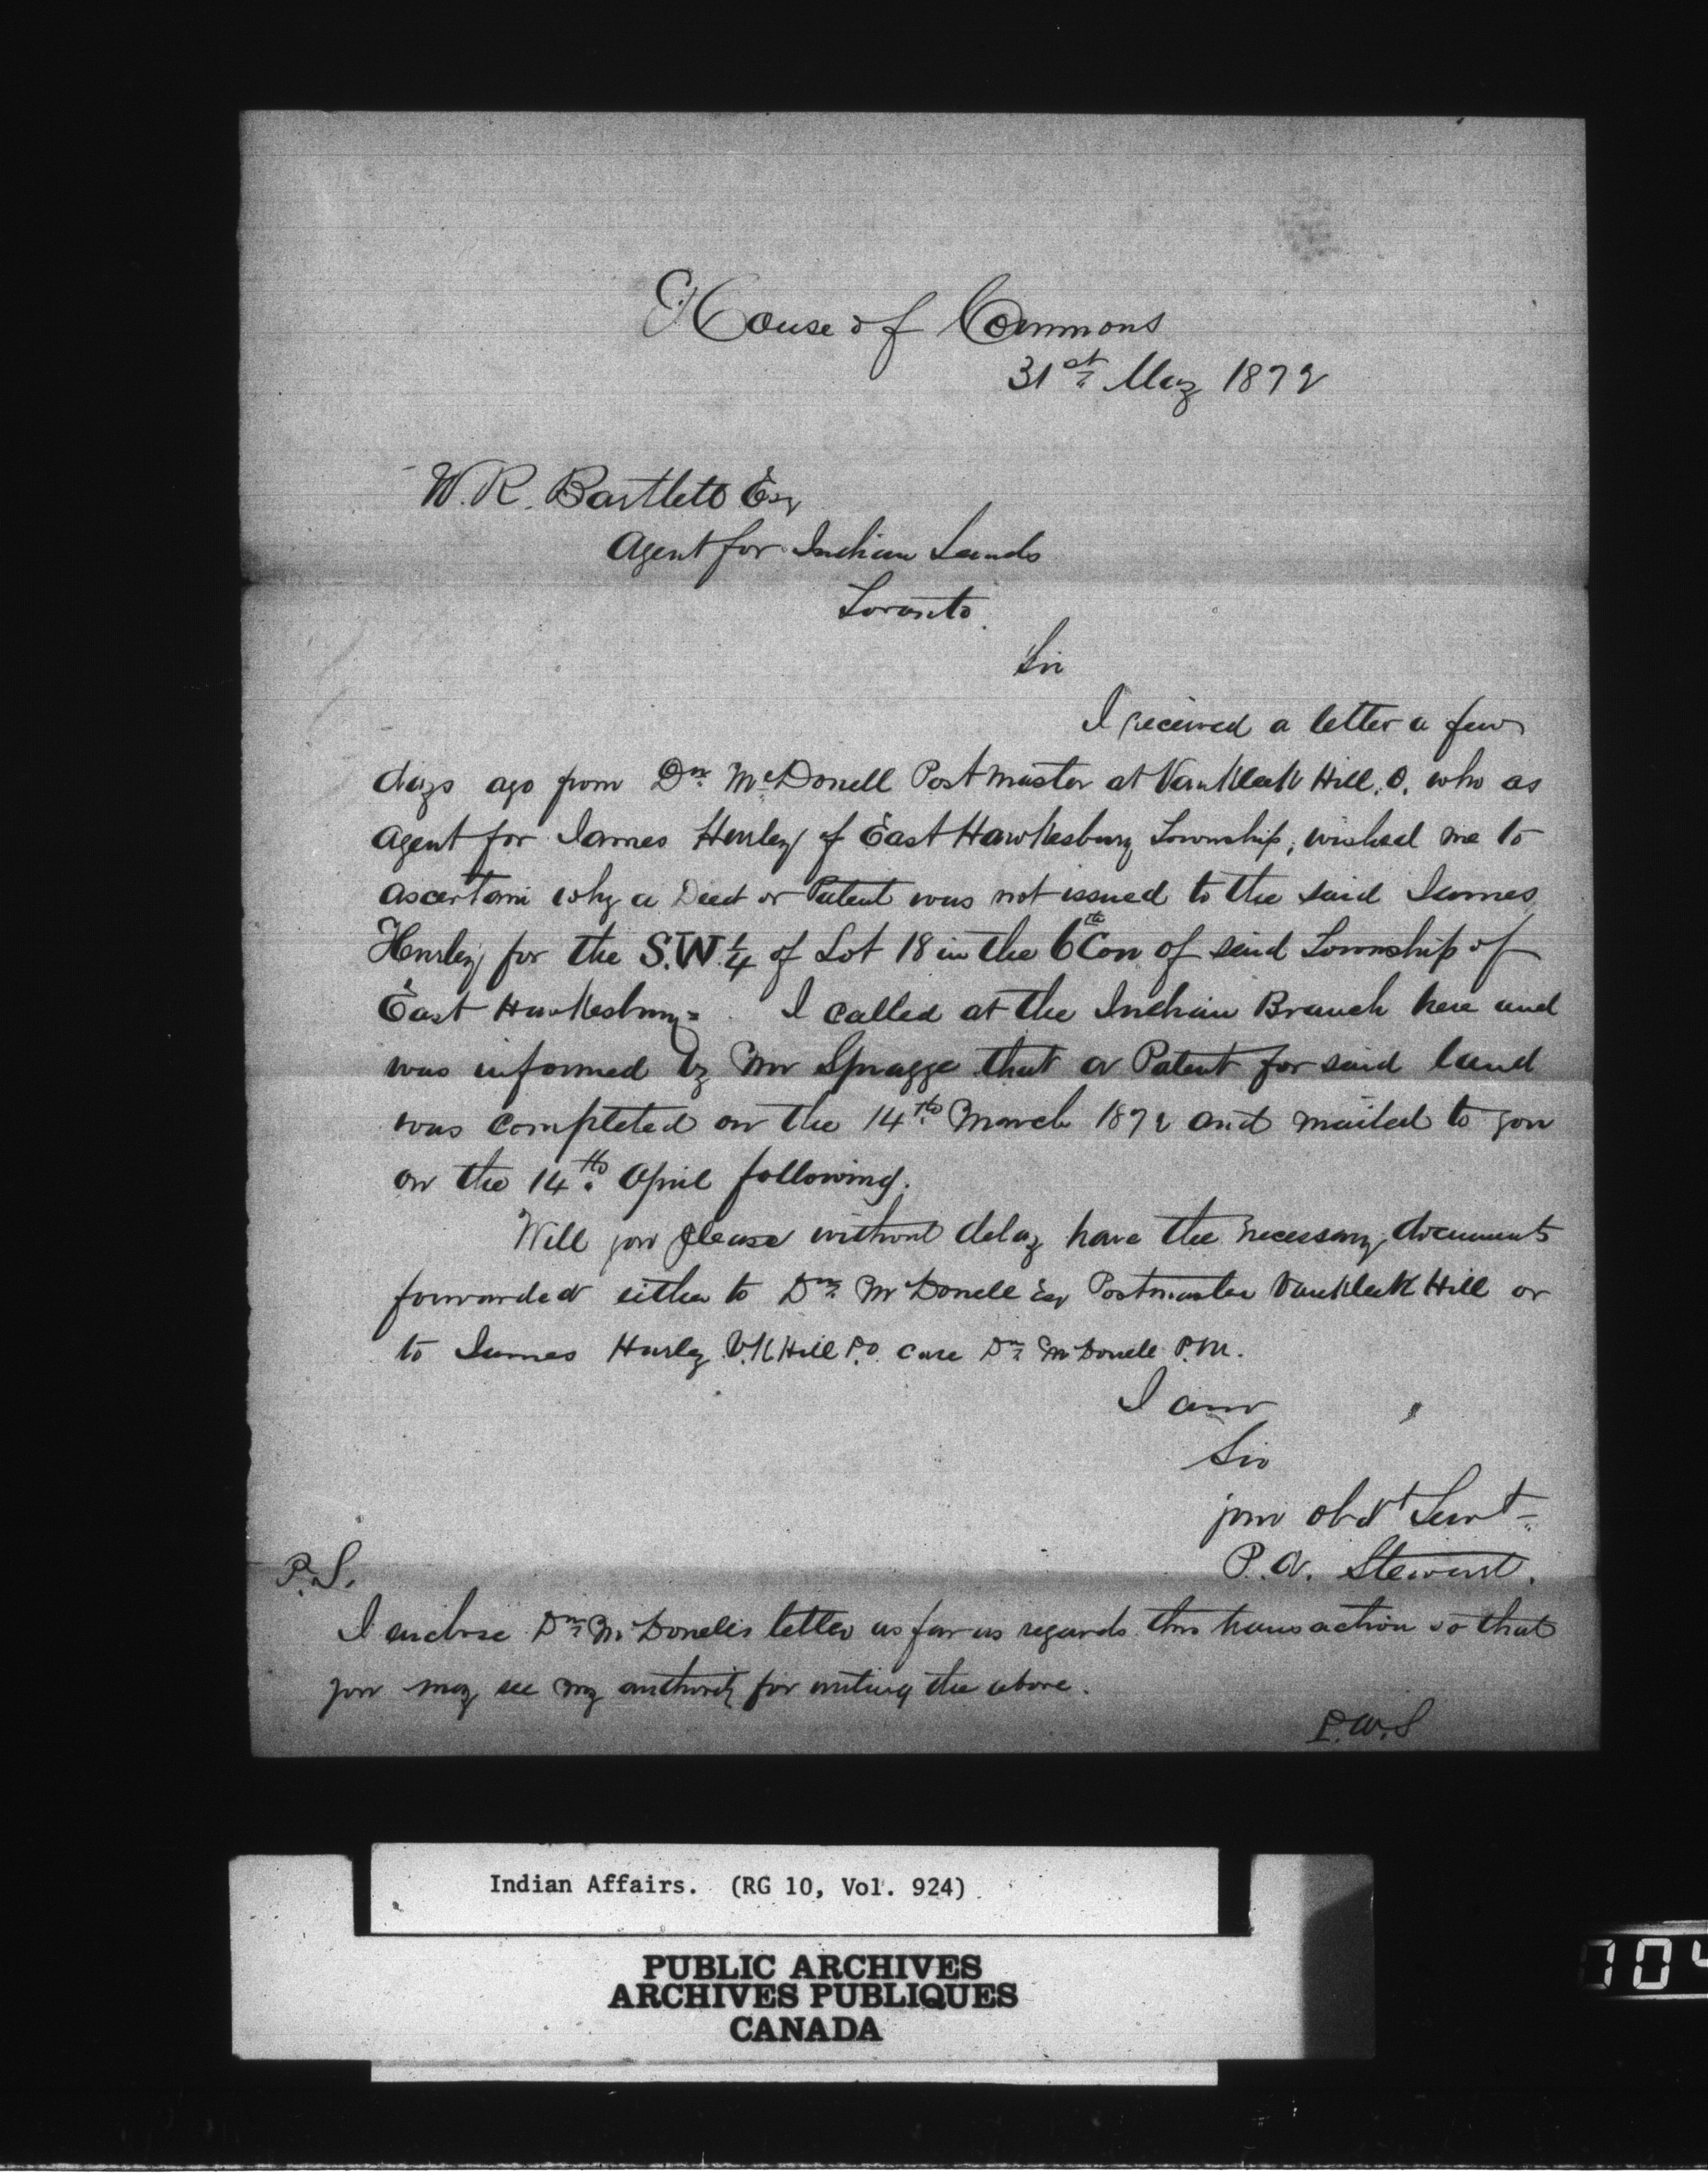 House of Commons
31st May 1872
W. R. Bartlett Esq
Agent for Indian Lands
Toronto.
Sir
I received a letter a few
days ago from Dn. McDonell Postmaster at VanKleek Hill. O. who as
agent for James Hurley of East Hawkesbury Township, wished me to
ascertain why a Deed or Patent was not issued to the said James
Hurley for the S.W. 1/4 of Lot 18 in the 6th Con of said Township of
East Hawkesbury = . I called at the Indian Branch here and
was informed by Mr Spragge that a Patent for said land
was completed on the 14th March 1872 and mailed to you
on the 14th. April following.
Will you please without delay have the necessary documents
forwarded either to Dn. McDonell Esq Postmaster VanKleek Hill or
to James Hurley V.K Hill P.O. care Dn. McDonell P.M.
I am
Sir
your obdt Servt
P.S.
I enclose Dn. McDonell's letter as far as regards this transaction so that
you may see my authority for writing the above.
Indian Affairs. (RG 10, Vol. 924)
PUBLIC ARCHIVES
ARCHIVES PUBLIQUES
CANADA